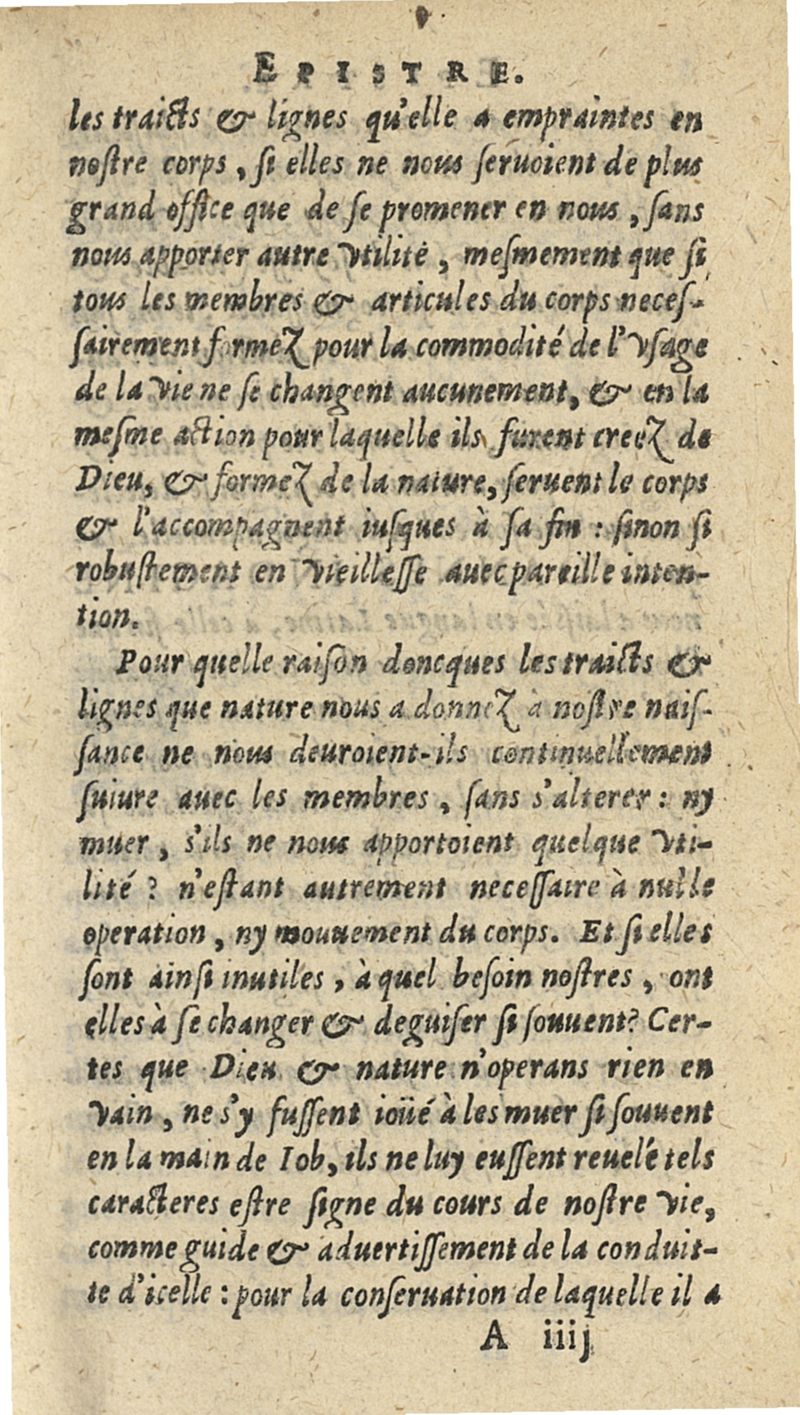 EPISTRE.
les traicts & lignes qu'elle a empraintes en
nostre corps, si elles ne nous seruoient de plus
grand office que de se promener en nous, sans
nous apporter autre vtilité, mesmement que si
tous les membres & articules du corps neces-
sairement formez pour la commodité de l'vsage
de la vie ne se changent aucunement, & en la
mesme action pour laquelle ils furent creez de
Dieu, & formez de la nature, seruent le corps
& l'accompagnent iusques à sa fin : sinon si
robustement en vieillesse auec pareille inten-
tion.
Pour quelle raison doncques les traicts &
lignes que nature nous a donnez à nostre nais-
sance ne nous deuroient-ils continuellement
suiure auec les membres, sans s'alterer : ny
muer, s'ils ne nous apportoient quelque vti-
lité ? n'estant autrement necessaire à nulle
operation, ny mouuement du corps. Et si elles
sont ainsi inutiles, à quel besoin nostres, ont
elles à se changer & deguiser si souuent? Cer-
tes que Dieu & nature n'operans rien en
vain, ne s'y fussent ioüé à les muer si souuent
en la main de Iob, ils ne luy eussent reuelé tels
caracteres estre signe du cours de nostre vie,
comme guide & aduertissement de la conduit-
te d'icelle : pour la conseruation de laquelle il a
A iiij